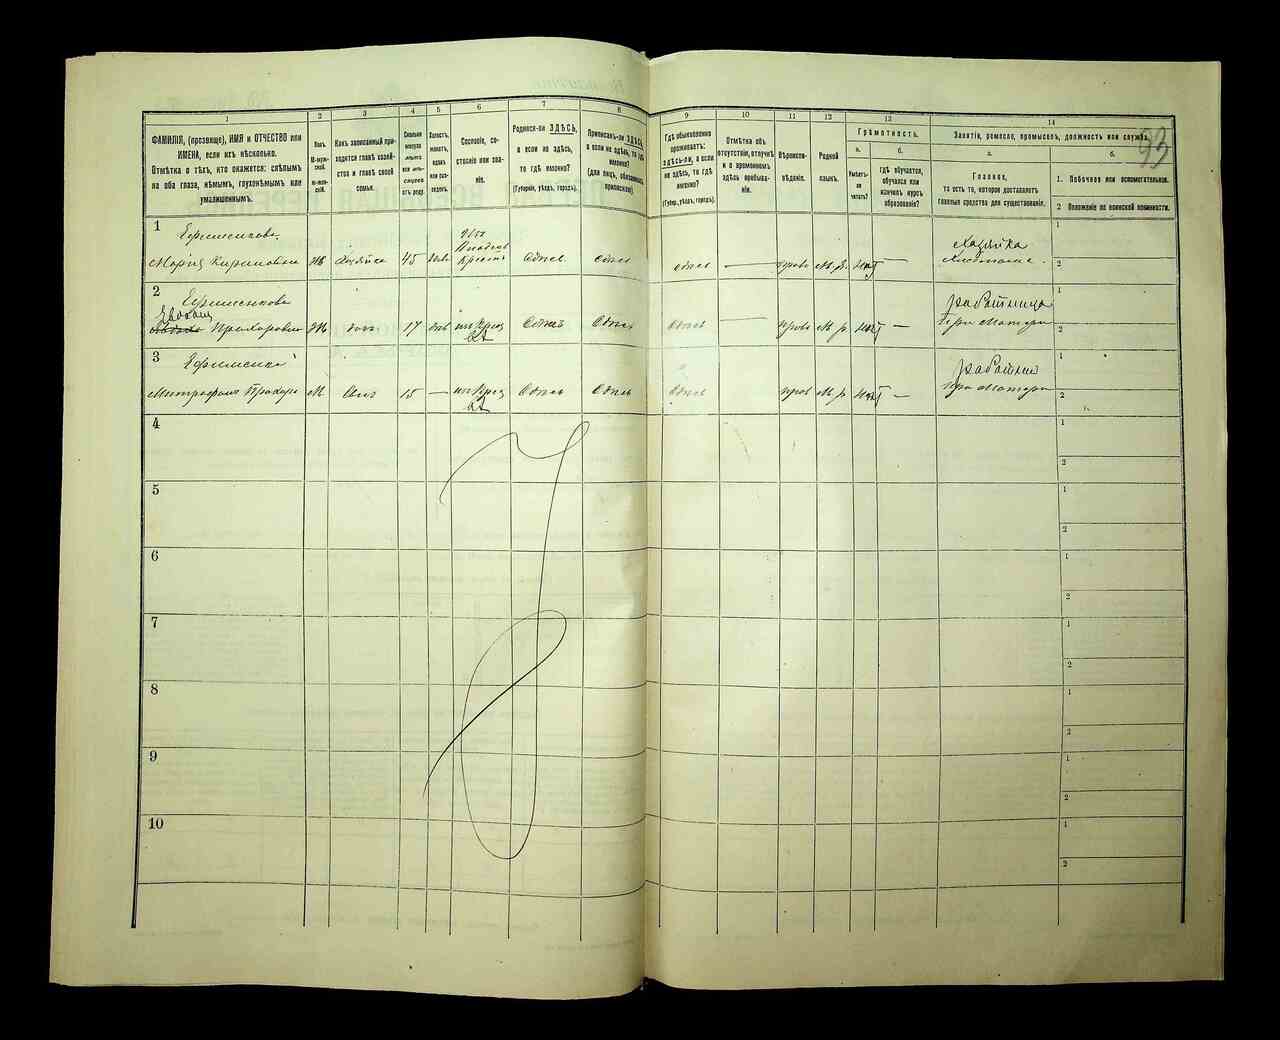 93
1
2
3
4
5
6
7
8
9
10
11
12
13
14
ФАМИЛІЯ, (прозвище), ИМЯ и ОТЧЕСТВО или
ИМЕНА, если ихъ нѣсколько.
Отмѣтка о тѣхъ, кто окажется: слѣпымъ
на оба глаза, нѣмымъ, глухонѣмымъ или
умалишеннымъ.
Полъ.
М-муж-
ской.
Ж-жен-
скій.
Какъ записанный при-
ходится главѣ хозяй-
ства и главѣ своей
семьи.
Сколько
минуло
лѣтъ
Холостъ,
женатъ,
вдовъ
или раз-
веденъ.
Сословіе, со-
стояніе или зва-
ніе.
Родился-ли ЗДѢСЬ,
а если не здѣсь,
то гдѣ именно?
(Губернія, уѣздъ, городъ).
Приписанъ-ли ЗДѢСЬ,
а если не здѣсь, то гдѣ
именно?
(для лицъ, обязанныхъ
припискою).
Гдѣ обыкновенно
проживаетъ:
ЗДѢСЬ-ли, а если
не здѣсь, то гдѣ
именно?
(Губер., уѣздъ, городъ).
Отмѣтка объ
отсутствіи, отлучкѣ
и о временномъ
здѣсь пребыва-
ніи.
Вѣроиспо-
вѣданіе.
Родной
языкъ.
Грамотность.
а.
б.
Умѣетъ-
ли
читать?
гдѣ обучается,
обучался или
кончилъ курсъ
образованія?
Занятіе, ремесло, промыселъ, должность или служба.
а.
б.
Главное,
то есть то, которое доставляетъ
главныя средства для существованія.
1. Побочное или вспомогательное.
2 Положеніе по воинской повинности.
1
Ефименкова
Марія Кириловна Ж Хозяйка 45 вдова Крест. Здѣсь Здѣсь Здѣсь — право М. р. нѣтъ —
Хозяйка
1
2
2
Ефименкова
Прохоровна Ж дочь 17 Здѣсь Здѣсь Здѣсь — право М. р. нѣтъ —
работница
при Матери
1
2
3
Ефименко
Митрофанъ Прохоров М Сынъ 15 — Здѣсь Здѣсь Здѣсь право М. р. нѣтъ —
работник
при Матери
1
2
4
1
2
5
1
2
6
1
2
7
1
2
8
1
2
9
1
2
10
1
2